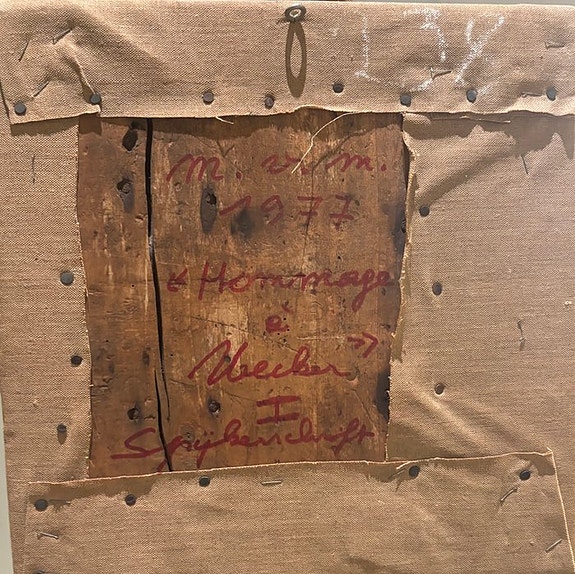 m. v. m.
1977
«Hommage
à
Uecker»
I
Spijkerschrift